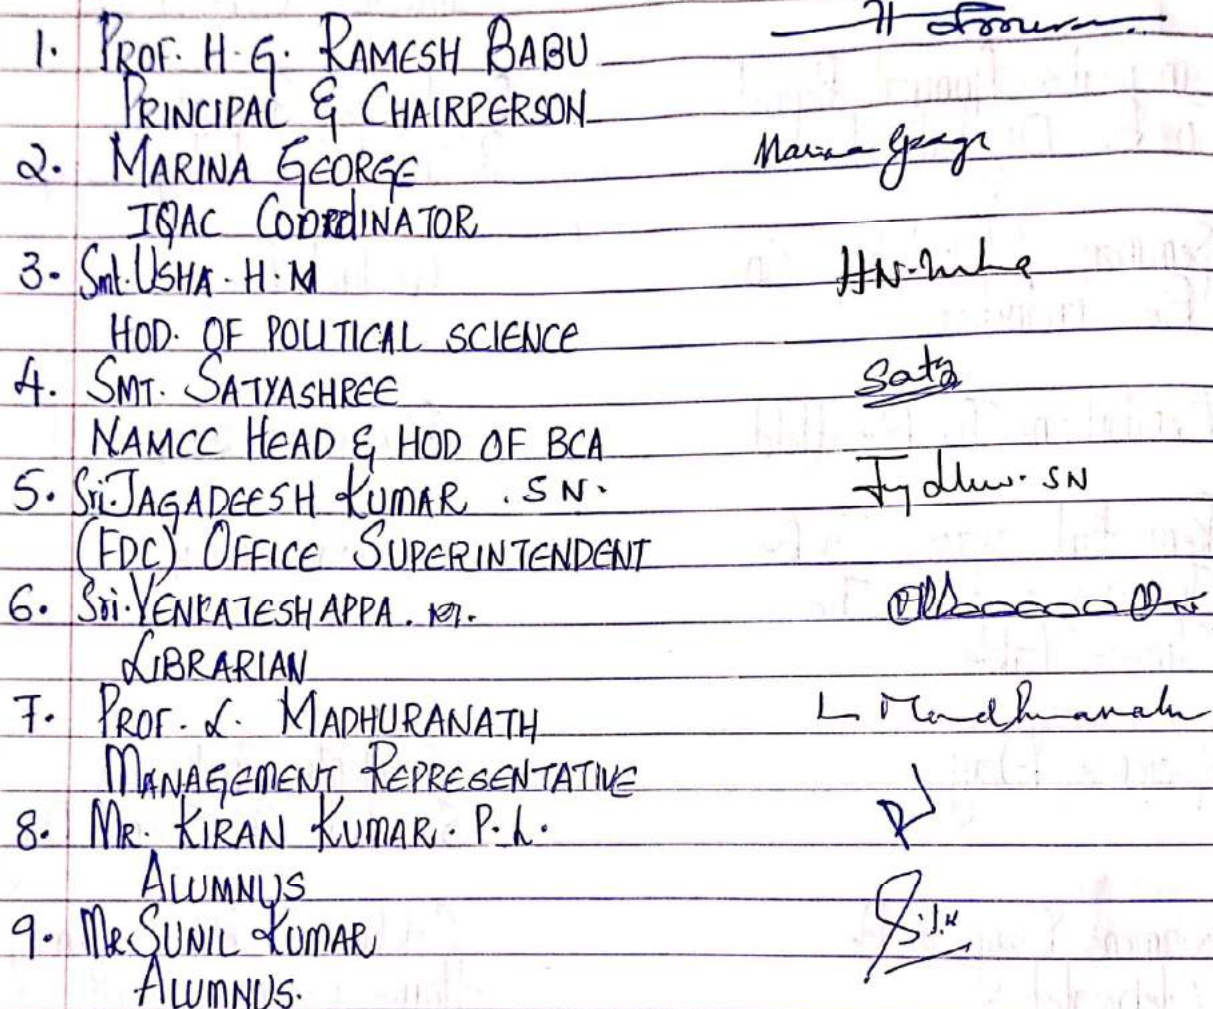 1. PROF. H.G. RAMESH BABU
PRINCIPAL & CHAIRPERSON
2. MARINA GEORGE Marina George
IQAC COORDINATOR
3. Smt. USHA. H.N
HOD. OF POLITICAL SCIENCE
4. SMT. SATYASHREE Satya
NAMCC HEAD & HOD OF BCA
5. Sri. JAGADEESH KUMAR. S N. SN
(FDC) OFFICE SUPERINTENDENT
6. Sri. VENKATESHAPPA.
LIBRARIAN
7. PROF. L. MADHURANATH L Madhuranath
MANAGEMENT REPRESENTATIVE
8. MR. KIRAN KUMAR. P. L.
ALUMNUS
9. MR SUNIL KUMAR
ALUMNUS.